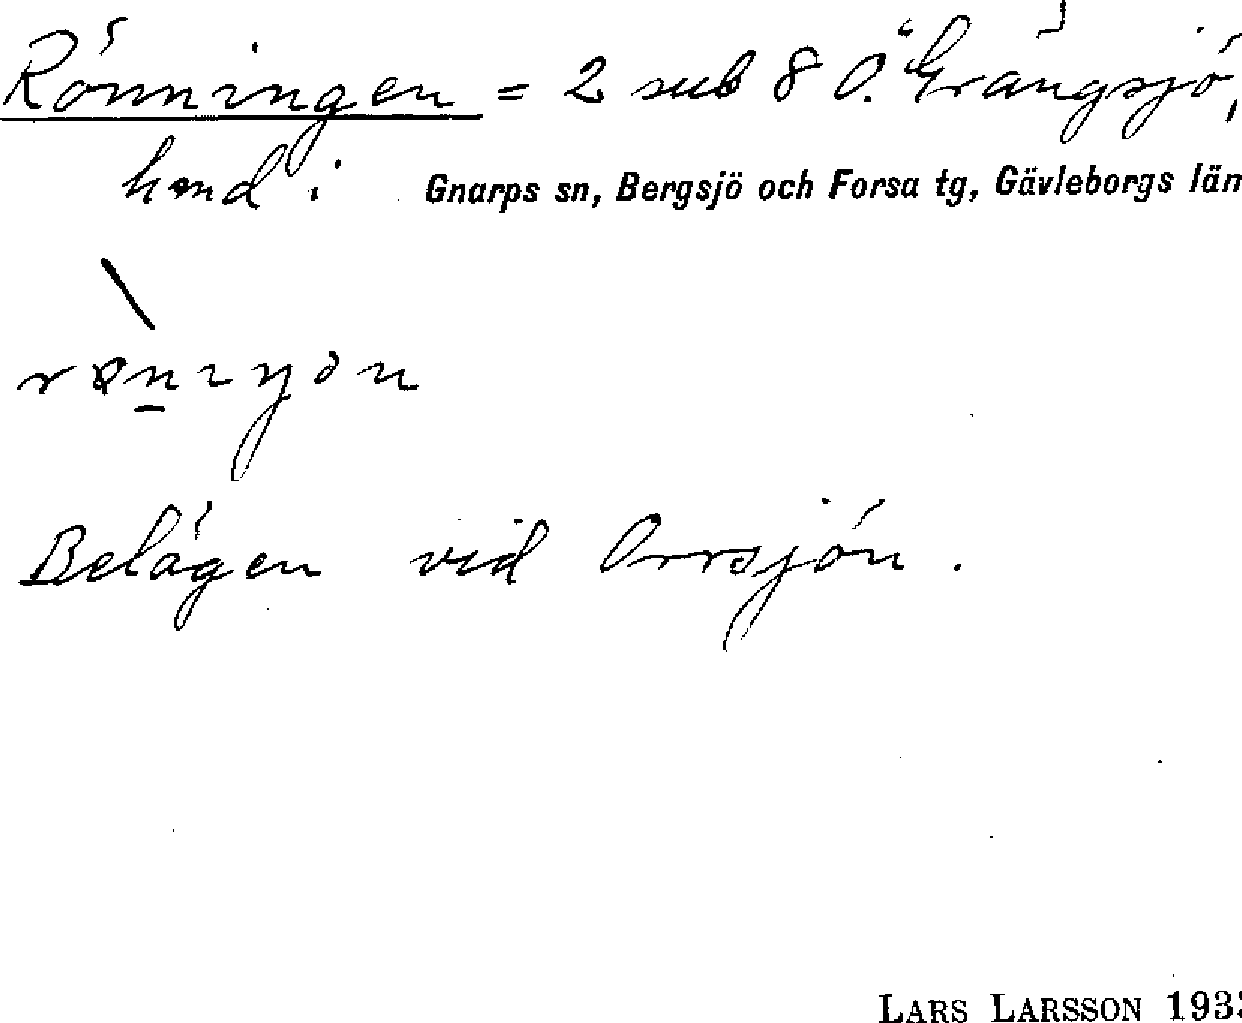 Rönningen = 2 sub 8 Ö. Grängsjö,
hmd i Gnarps sn, Bergsjö och Forsa tg, Gävleborgs län
Belägen vid Orrsjön.
LARS LARSSON 193